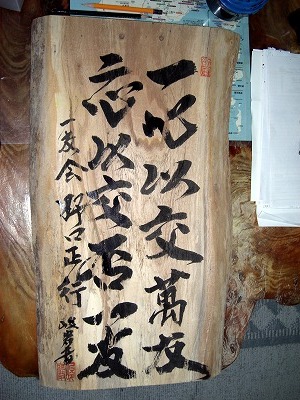 一心以交萬友
二心以交否一友
一友会 野口正行 書